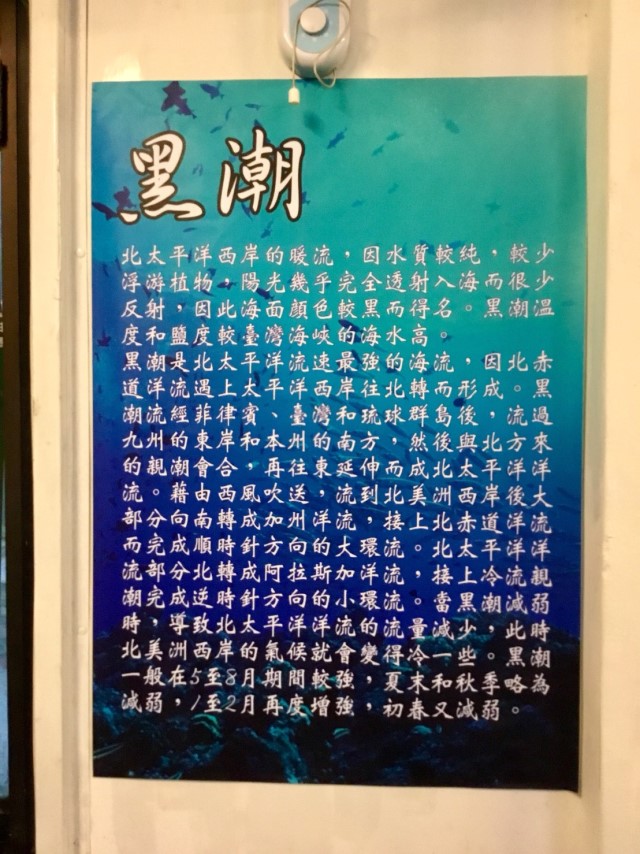 黑潮
北太平洋西岸的暖流，因水質較純，較少
浮游植物，陽光幾乎完全透射入海而很少
反射，因此海面顏色較黑而得名。黑潮溫
度和鹽度較臺灣海峽的海水高。
黑潮是北太平洋流速最強的海流，因北赤
道洋流遇上太平洋西岸往北轉而形成。黑
潮流經菲律賓、臺灣和琉球群島後，流過
九州的東岸和本州的南方，然後與北方來
的親潮會合，再往東延伸而成北太平洋洋
流。藉由西風吹送，流到北美洲西岸後大
部分向南轉成加州洋流，接上北赤道洋流
而完成順時針方向的大環流。北太平洋洋
流部分北轉成阿拉斯加洋流，接上冷流親
潮完成逆時針方向的小環流。當黑潮減弱
時，導致北太平洋洋流的流量減少，此時
北美洲西岸的氣候就會變得冷一些。黑潮
一般在5至8月期間較強，夏末和秋季略為
減弱，1至2月再度增強，初春又減弱。